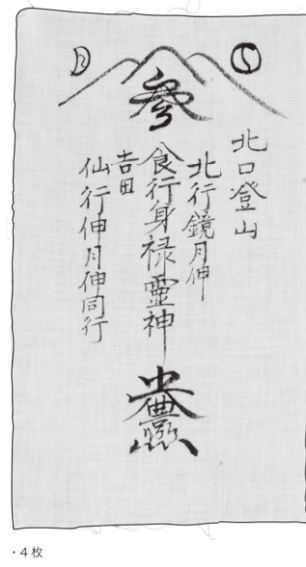 參
北口登山
北行鏡月伸
食行身禄霊神
吉田
仙行伸月伸同行
・4枚